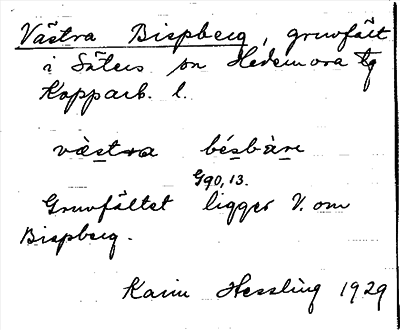 Västra Bispberg, gruvfält
i Säters sn Hedemora tg
Kopparb. l.
västra bésbàre
G90,13.
Gruvfältet ligger V. om
Bispberg.
Karin Hessling 1929